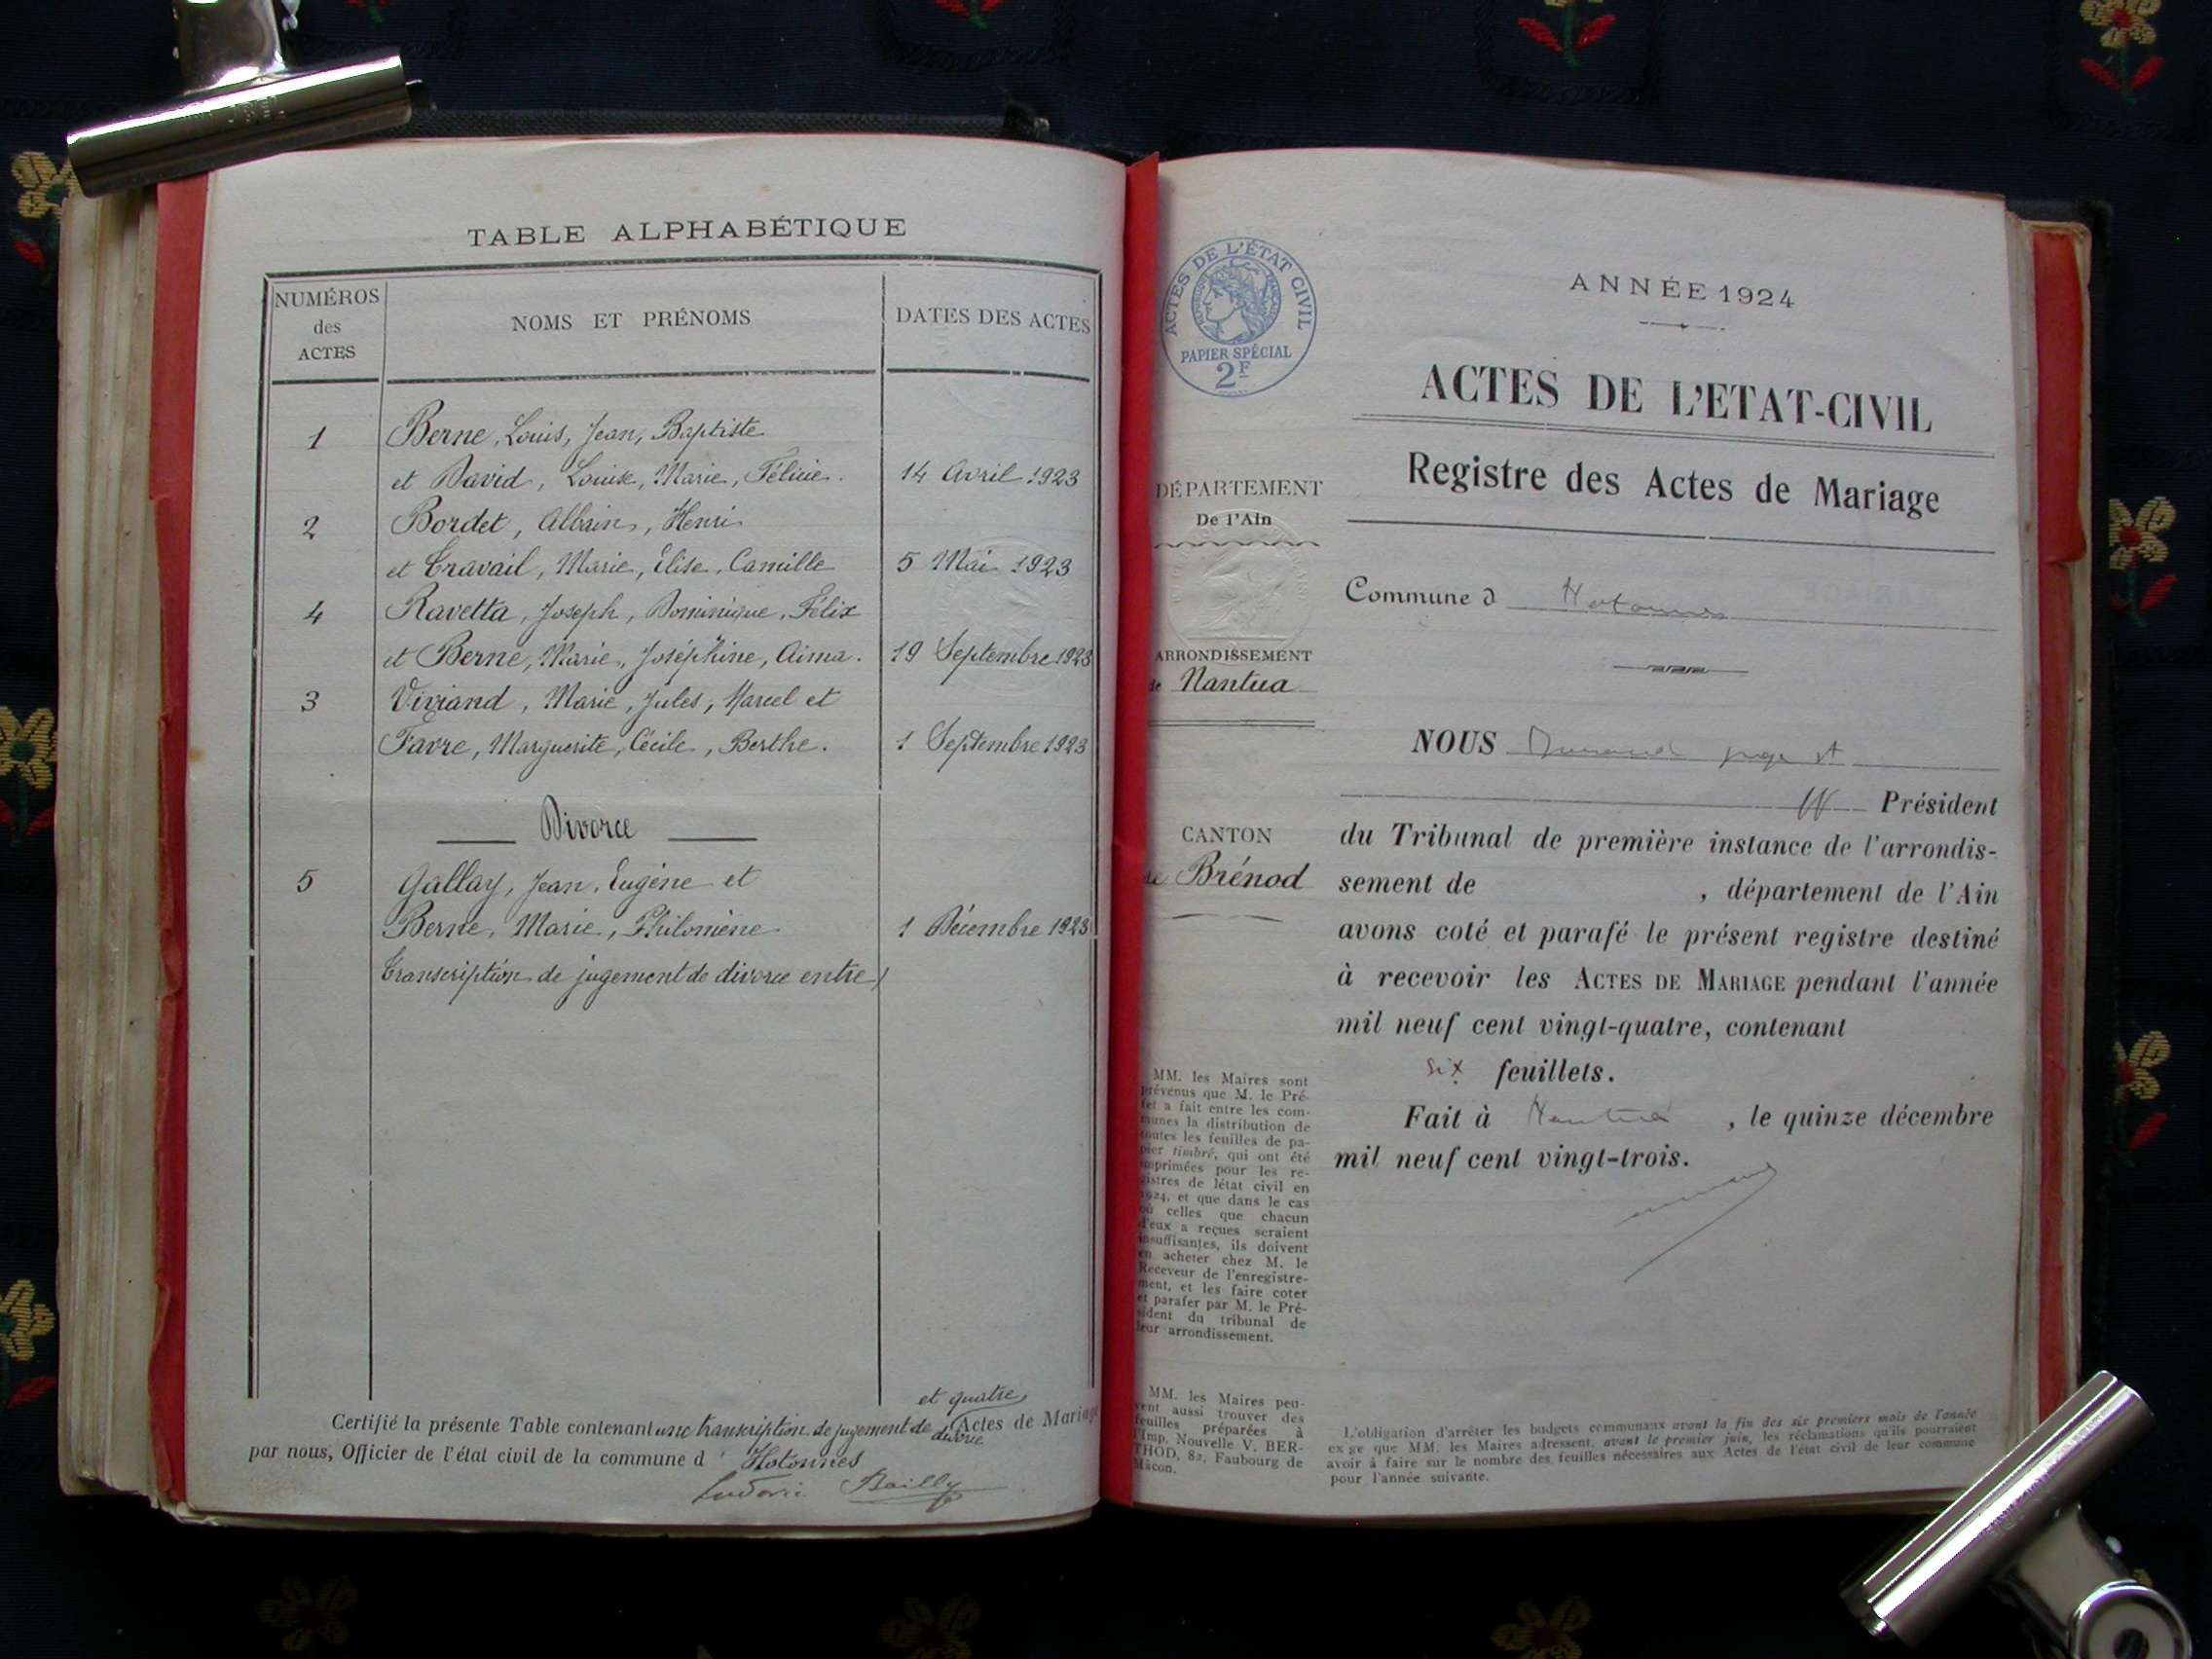 TABLE ALPHABÉTIQUE
NUMÉROS
des
ACTES
NOMS ET PRÉNOMS
DATES DES ACTES
1 Berne, Louis, Jean, Baptiste
et David, Louise, Marie, Félicie. 14 Avril 1923
2 Bordet, Albain, Henri
et Travail, Marie, Elise, Camille 5 Mai 1923
4 Ravetta, Joseph, Dominique, Félix
et Berne, Marie, Joséphine, Aima. 19 Septembre 1923
3 Viviand, Marie, Jules, Marcel et
Favre, Marguerite, Cécile, Berthe. 1 Septembre 1923
Divorce
5 Gallay, Jean, Eugène et
Berne, Marie, Philomène 1 Décembre 1923
Transcription de jugement de divorce entre
et quatre
Certifié la présente Table contenant une transcription de jugement de divorce Actes de Mariage
par nous, Officier de l'état civil de la commune d' Hotonnes
Ludovic Bailly
ACTES DE L'ÉTAT CIVIL
PAPIER SPÉCIAL
2F
DÉPARTEMENT
De l'Ain
ARRONDISSEMENT
de Nantua
CANTON
de Brénod
MM. les Maires sont
prévenus que M. le Pré-
fet a fait entre les com-
munes la distribution de
toutes les feuilles de pa-
pier timbré, qui ont été
imprimées pour les re-
gistres de létat civil en
1924, et que dans le cas
où celles que chacun
d'eux a reçues seraient
insuffisantes, ils doivent
en acheter chez M. le
Receveur de l'enregistre-
ment, et les faire coter
et parafer par M. le Pré-
sident du tribunal de
leur arrondissement.
MM. les Maires peu-
vent aussi trouver des
feuilles préparées à
l'Imp. Nouvelle V. BER-
THOD, 82, Faubourg de
Mâcon.
ANNÉE 1924
ACTES DE L'ETAT-CIVIL
Registre des Actes de Mariage
Commune d Hotonnes
NOUS
Président
du Tribunal de première instance de l'arrondis-
sement de , département de l'Ain
avons coté et parafé le présent registre destiné
à recevoir les ACTES DE MARIAGE pendant l'année
mil neuf cent vingt-quatre, contenant
six feuillets.
Fait à Nantua , le quinze décembre
mil neuf cent vingt-trois.
L'obligation d'arrêter les budgets communaux avant la fin des six premiers mois de l'année
exige que MM. les Maires adressent, avant le premier juin, les réclamations qu'ils pourraient
avoir à faire sur le nombre des feuilles nécessaires aux Actes de l'état civil de leur commune
pour l'année suivante.